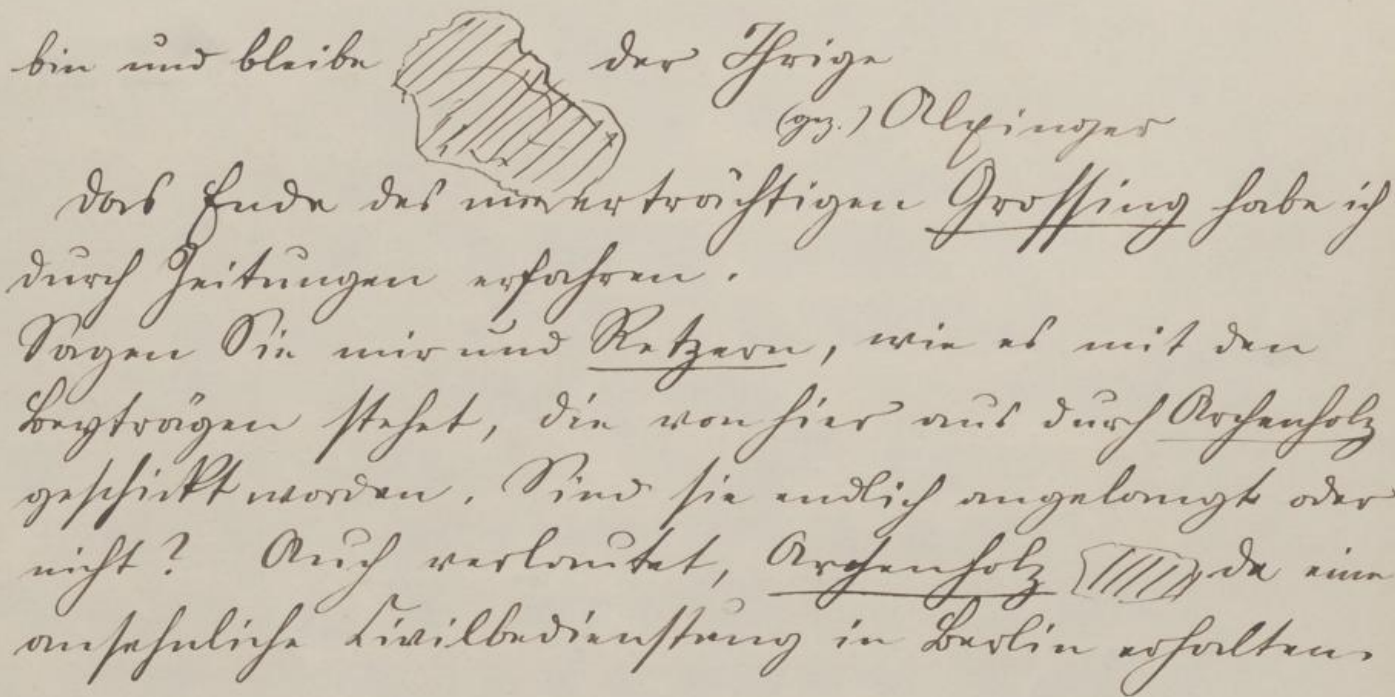 bin und bleibe der Ihrige
(gez.) Alxinger
Das Ende des niederträchtigen Grossing habe ich
durch Zeitungen erfahren.
Sagen Sie mir und Retzern, wie es mit den
Beyträgen stehet, die von hier aus durch Archenholz
geschickt worden. Sind sie endlich angelangt oder
nicht? Auch verlautet, Archenholz de eine
ansehnliche Civilbedienstung in Berlin erhalten.